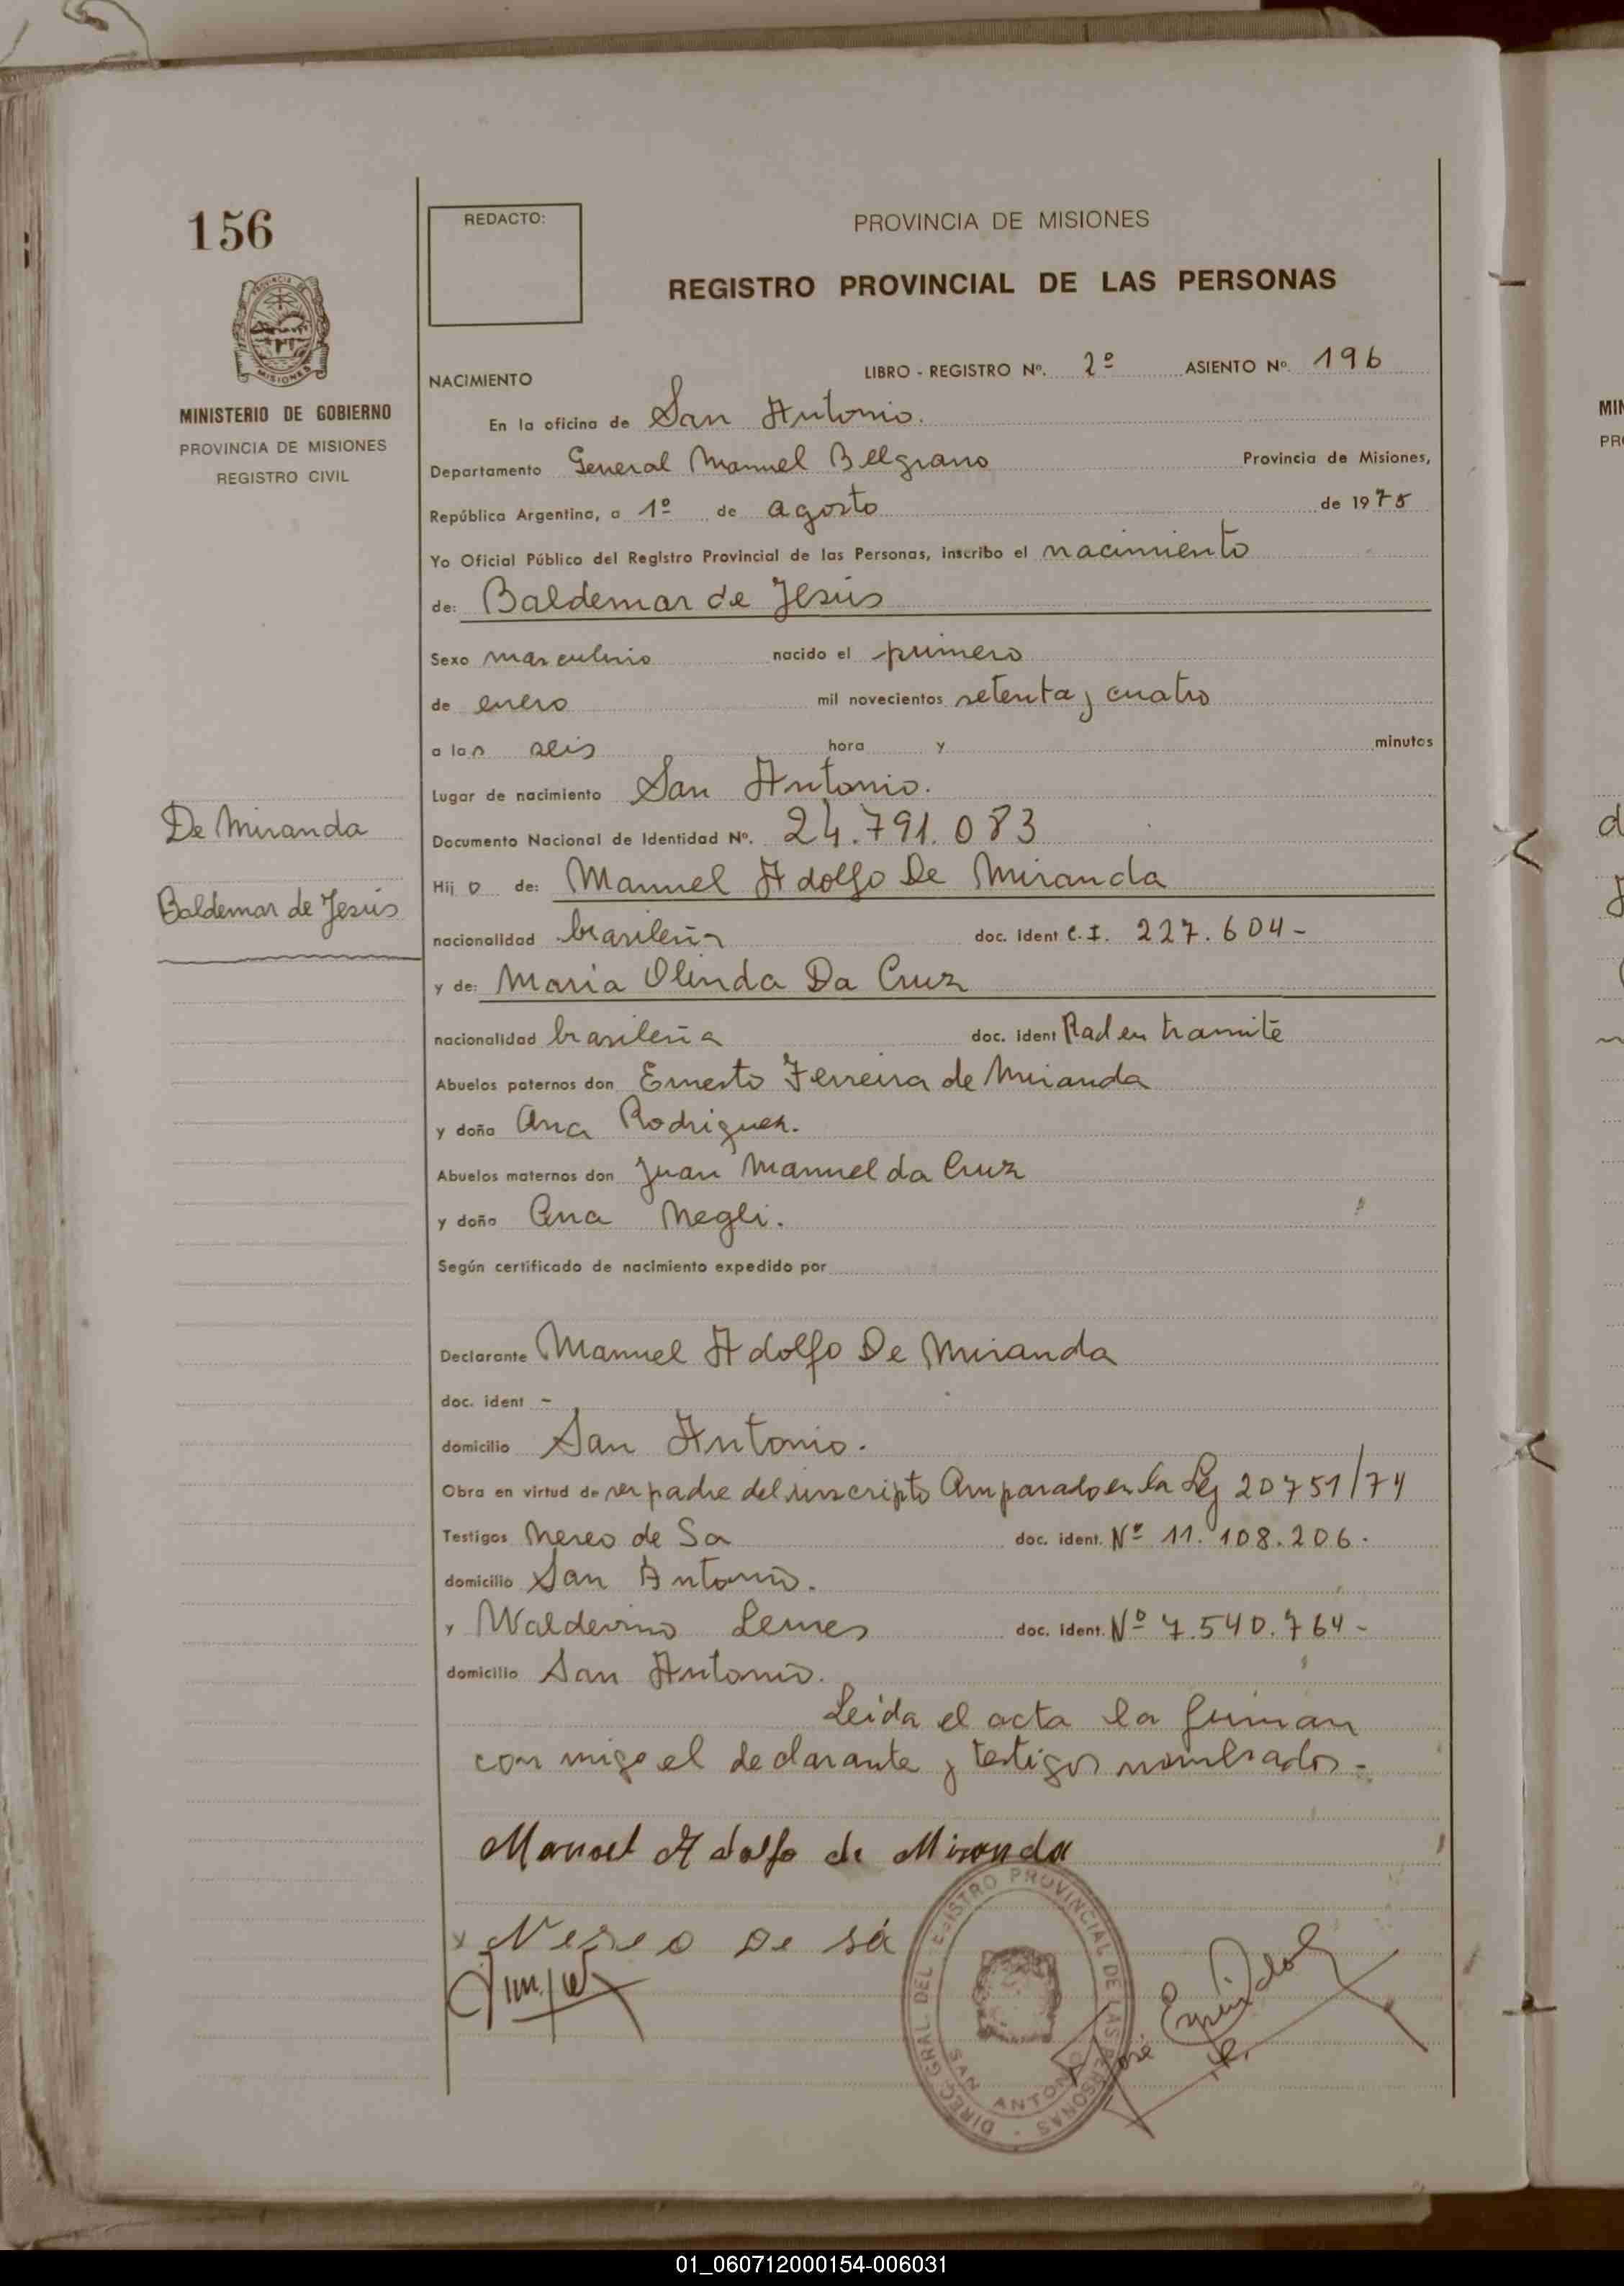 156
REDACTO:
PROVINCIA DE MISIONES
REGISTRO PROVINCIAL DE LAS PERSONAS
MINISTERIO DE GOBIERNO
PROVINCIA DE MISIONES
REGISTRO CIVIL
NACIMIENTO
LIBRO - REGISTRO Nº. 2º ASIENTO Nº. 196
En la oficina de San Antonio.
Departamento General Manuel Belgrano Provincia de Misiones,
República Argentina, a 1º de agosto de 1975
Yo Oficial Público del Registro Provincial de las Personas, inscribo el nacimiento
de: Baldemar de Jesús
Sexo masculino nacido el primero
de enero mil novecientos setenta y cuatro
a las seis hora y minutos
Lugar de nacimiento San Antonio.
De Miranda
Documento Nacional de Identidad Nº. 24.791.083
Hijo de: Manuel Adolfo De Miranda
Baldemar de Jesús
nacionalidad brasileña doc. ident C.I. 227.604-
y de: Maria Olinda Da Cruz
nacionalidad brasileña doc. ident Rad en tramite
Abuelos paternos don Ernesto Ferreira de Miranda
y doña Ana Rodriguez.
Abuelos maternos don Juan Manuel da Cruz
y doña Ana Negli.
Según certificado de nacimiento expedido por
Declarante Manuel Adolfo De Miranda
doc. ident -
domicilio San Antonio.
Obra en virtud de ser padre del inscripto Amparado en la Ley 20751/74
Testigos Nereo de Sa doc. ident. Nº 11.108.206.
domicilio San Antonio.
y Walderino Lemes doc. ident. Nº 7.540.764-
domicilio San Antonio.
Leida el acta la firman
con migo el declarante y testigos nombrados-
Manoel Adolfo de Miranda
Nereo De sá
DIREC. GRAL. DEL REGISTRO PROVINCIAL DE LAS PERSONAS
SAN ANTONIO
José
01_060712000154-006031